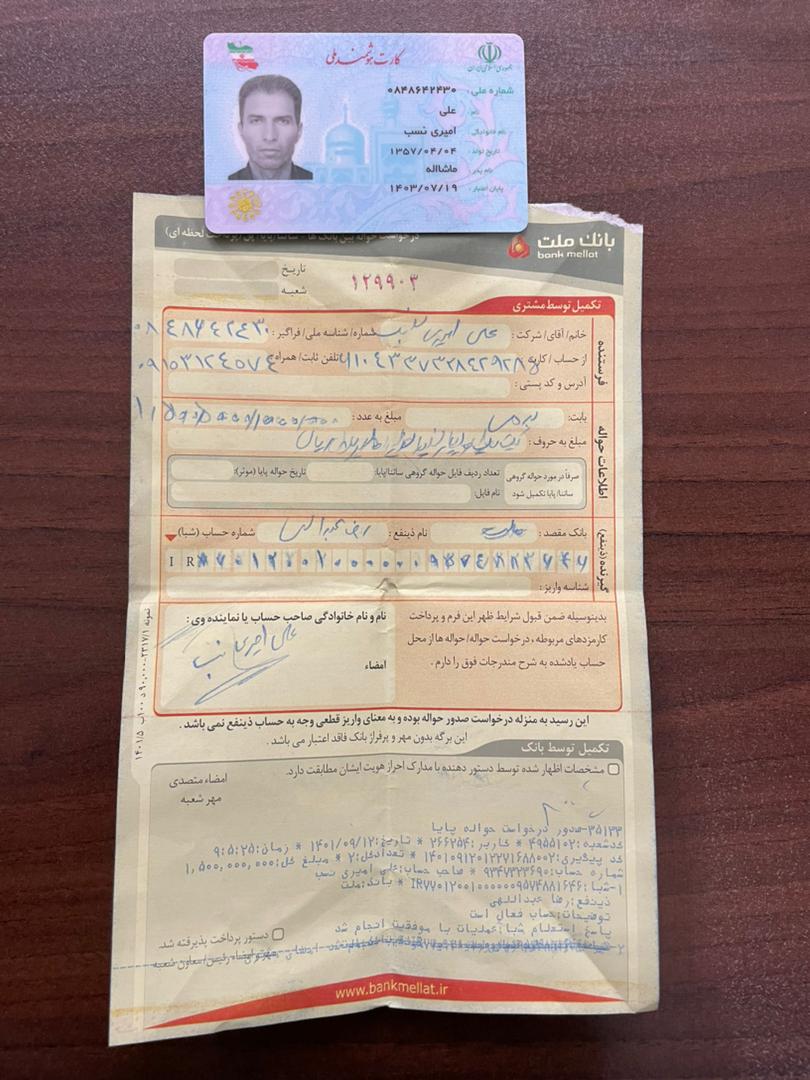 کارت هوشمند ملی
جمهوری اسلامی ایران
شماره ملی: ۰۸۴۸۶۴۲۴۳۰
نام: علی
نام خانوادگی: امیری نسب
تاریخ تولد: ۱۳۵۷/۰۴/۰۴
نام پدر: ماشااله
پایان اعتبار: ۱۴۰۳/۰۷/۱۹
بانک ملت
bank mellat
درخواست حواله بین بانک ها - ساتنا/پایا لحظه ای)
تاریخ
شعبه
۱۲۹۹۰۳
تکمیل توسط مشتری
فرستنده
خانم/ آقای/ شرکت: علی امیری نسب شماره/ شناسه ملی/ فراگیر: ۰۸۴۸۶۴۲۴۳۰
از حساب / کارت: تلفن ثابت/ همراه: ۰۹۱۵۳۱۲۴۵۷۴
آدرس و کد پستی:
اطلاعات حواله
بابت: مبلغ به عدد:
مبلغ به حروف: ریال
صرفاً در مورد حواله گروهی ساتنا/ پایا تکمیل شود
تعداد ردیف فایل حواله گروهی ساتنا/پایا: تاریخ حواله پایا (موثر):
نام فایل:
گیرنده (ذینفع)
بانک مقصد: ملت نام ذینفع: رضا عبداللهی شماره حساب (شبا)
IR ۷۷۰۱۲۰۰۱۰۰۰۰۰۰۹۵۷۴۸۸۱۶۴۶
شناسه واریز:
بدینوسیله ضمن قبول شرایط ظهر این فرم و پرداخت
کارمزدهای مربوطه، درخواست حواله/ حواله ها از محل
حساب یادشده به شرح مندرجات فوق را دارم.
نام و نام خانوادگی صاحب حساب یا نماینده وی:
علی امیری نسب
امضاء
نمونه ۲۳۱۷/۱
این رسید به منزله درخواست صدور حواله بوده و به معنای واریز قطعی وجه به حساب ذینفع نمی باشد.
این برگه بدون مهر و پرفراژ بانک فاقد اعتبار می باشد.
تکمیل توسط بانک
مشخصات اظهار شده توسط دستور دهنده با مدارک احراز هویت ایشان مطابقت دارد.
امضاء متصدی
مهر شعبه
۳۵۱۳۳-صدور درخواست حواله پایا
کدشعبه: ۴۹۵۵۱۰۲ * کاربر: ۲۶۶۲۵۴ * تاریخ: ۱۴۰۱/۰۹/۱۲ * زمان: ۹:۵:۲۵
کد پیگیری: ۱۴۰۱۰۹۱۲۰۱۲۲۷۱۶۸۸۰۰۲ * تعدادکل: ۲ * مبلغ کل: ۱,۵۰۰,۰۰۰,۰۰۰
شماره حساب: ۹۳۴۷۳۲۳۶۹۰ * صاحب حساب: علی امیری نسب
۱-شبا: IR۷۷۰۱۲۰۰۱۰۰۰۰۰۰۹۵۷۴۸۸۱۶۴۶ * بانک: ملت
ذینفع: رضا عبداللهی
توضیحات: حساب فعال است
پاسخ استعلام شبا: عملیات با موفقیت انجام شد
دستور پرداخت پذیرفته شد.
مهر و امضاء رئیس/ معاون شعبه
www.bankmellat.ir